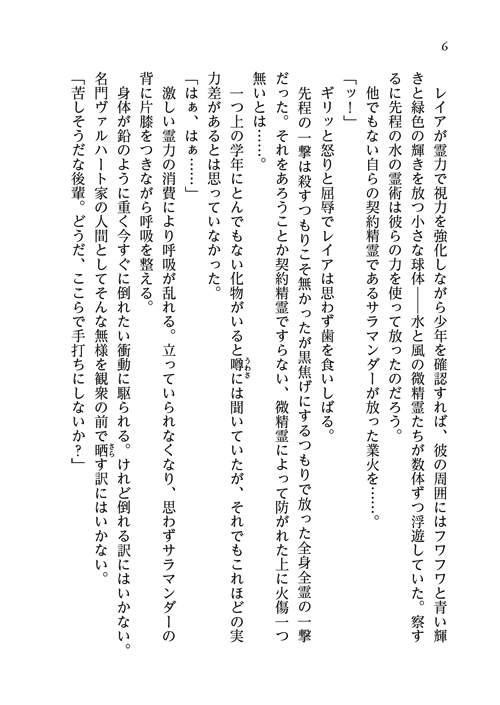 6
レイアが霊力で視力を強化しながら少年を確認すれば、彼の周囲にはフワフワと青い輝
きと緑色の輝きを放つ小さな球体――水と風の微精霊たちが数体ずつ浮遊していた。察す
るに先程の水の霊術は彼らの力を使って放ったのだろう。
他でもない自らの契約精霊であるサラマンダーが放った業火を……。
「ッ！」
ギリッと怒りと屈辱でレイアは思わず歯を食いしばる。
先程の一撃は殺すつもりこそ無かったが黒焦げにするつもりで放った全身全霊の一撃
だった。それをあろうことか契約精霊ですらない、微精霊によって防がれた上に火傷一つ
無いとは……。
一つ上の学年にとんでもない化物がいると噂うわさには聞いていたが、それでもこれほどの実
力差があるとは思っていなかった。
「はぁ、はぁ……」
激しい霊力の消費により呼吸が乱れる。立っていられなくなり、思わずサラマンダーの
背に片膝をつきながら呼吸を整える。
身体が鉛のように重く今すぐに倒れたい衝動に駆られる。けれど倒れる訳にはいかない。
名門ヴァルハート家の人間としてそんな無様を観衆の前で晒さらす訳にはいかない。
「苦しそうだな後輩。どうだ、ここらで手打ちにしないか？」